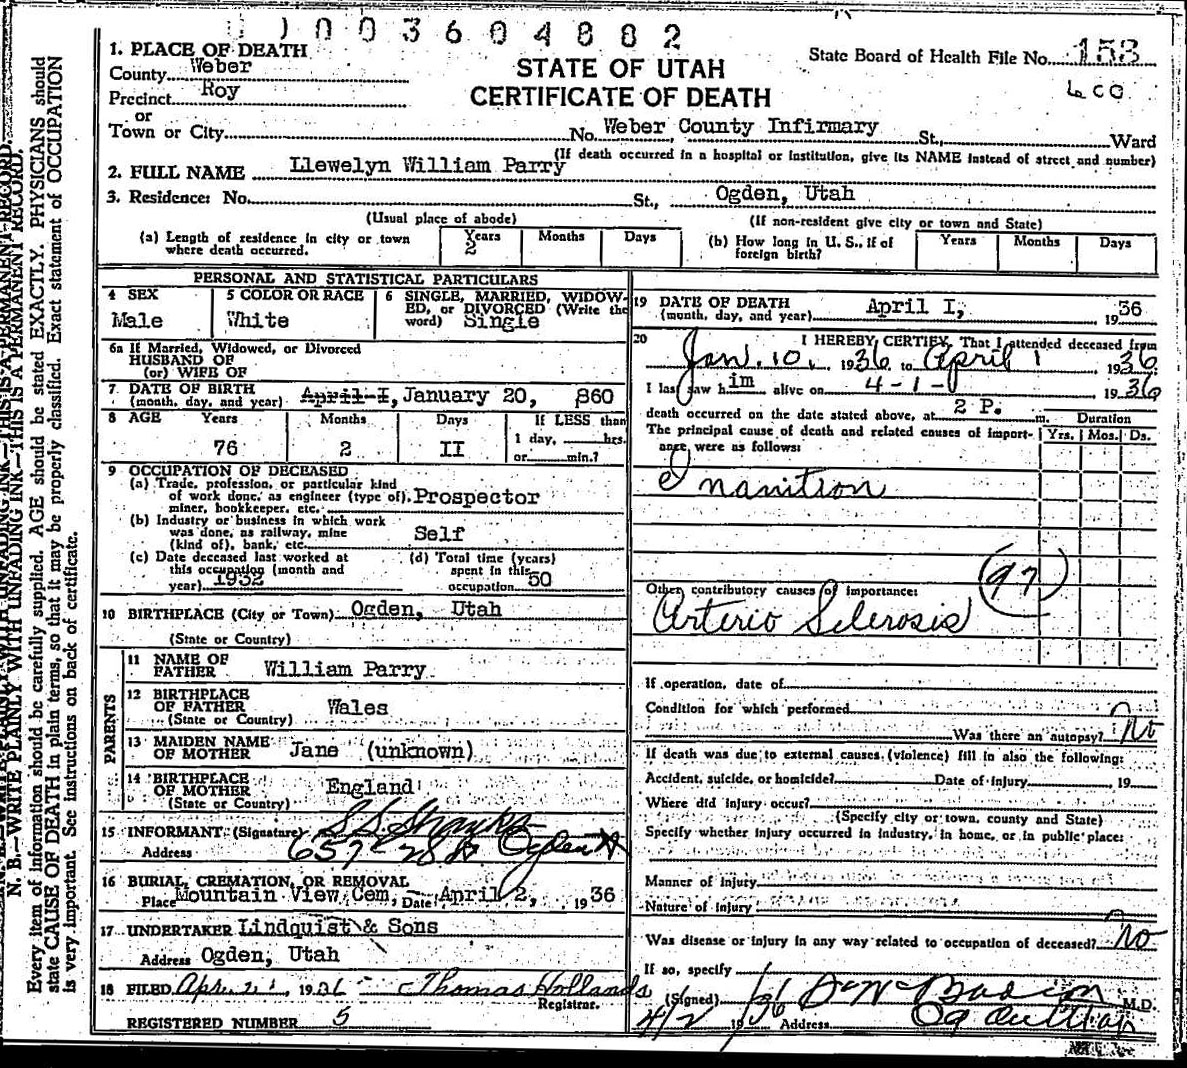 1003604882
1. PLACE OF DEATH
County Weber
Precinct Roy
or
Town or City
STATE OF UTAH
CERTIFICATE OF DEATH
State Board of Health File No. 153
No. Weber County Infirmary St., Ward
(If death occurred in a hospital or institution, give its NAME instead of street and number)
2. FULL NAME Llewelyn William Parry
3. Residence: No. St., Ogden, Utah
(Usual place of abode) (If non-resident give city or town and State)
(a) Length of residence in city or town where death occurred. Years 2 Months Days
(b) How long in U. S., if of foreign birth? Years Months Days
PERSONAL AND STATISTICAL PARTICULARS
4 SEX Male
5 COLOR OR RACE White
6 SINGLE, MARRIED, WIDOW-
ED, or DIVORCED (Write the
word) Single
6a If Married, Widowed, or Divorced
HUSBAND OF
(or) WIFE OF
7 DATE OF BIRTH
(month, day, and year) April I, January 20, 860
8 AGE Years 76 Months 2 Days II If LESS than
1 day, hrs.
or min.?
9 OCCUPATION OF DECEASED
(a) Trade, profession, or particular kind
of work done, as engineer (type of), Prospector
miner, bookkeeper, etc.
(b) Industry or business in which work
was done, as railway, mine Self
(kind of), bank, etc.
(c) Date deceased last worked at
this occupation (month and
year) 1932
(d) Total time (years)
spent in this
occupation 50
10 BIRTHPLACE (City or Town) Ogden, Utah
(State or Country)
PARENTS
11 NAME OF
FATHER William Parry
12 BIRTHPLACE
OF FATHER Wales
(State or Country)
13 MAIDEN NAME
OF MOTHER Jane (unknown)
14 BIRTHPLACE
OF MOTHER England
(State or Country)
15 INFORMANT (Signature)
Address 657 - 28 St Ogden
16 BURIAL, CREMATION, OR REMOVAL
Place Mountain View Cem, Date April 2, 1936
17 UNDERTAKER Lindquist & Sons
Address Ogden, Utah
18 FILED Apr. 1936 Thomas Hollands
Registrar.
REGISTERED NUMBER 5
19 DATE OF DEATH
(month, day, and year) April I, 1936
20 I HEREBY CERTIFY, That I attended deceased from
Jan. 10, 1936 to April 1 1936
I last saw him alive on 4-1- 1936
death occurred on the date stated above, at 2 P. m.
The principal cause of death and related causes of import-
ance were as follows:
Duration
Yrs. Mos. Ds.
Inanition
(97)
Other contributory causes of importance:
Arterio Sclerosis
If operation, date of
Condition for which performed
Was there an autopsy? No
If death was due to external causes (violence) fill in also the following:
Accident, suicide, or homicide? Date of injury , 19
Where did injury occur?
(Specify city or town, county and State)
Specify whether injury occurred in industry, in home, or in public place:
Manner of injury
Nature of injury
Was disease or injury in any way related to occupation of deceased? No
If so, specify
(Signed) M.D.
4/2 1936 Address Ogden Utah
N. B.—WRITE PLAINLY WITH UNFADING INK—THIS IS A PERMANENT RECORD.
Every item of information should be carefully supplied. AGE should be stated EXACTLY. PHYSICIANS should
state CAUSE OF DEATH in plain terms, so that it may be properly classified. Exact statement of OCCUPATION
is very important. See instructions on back of certificate.